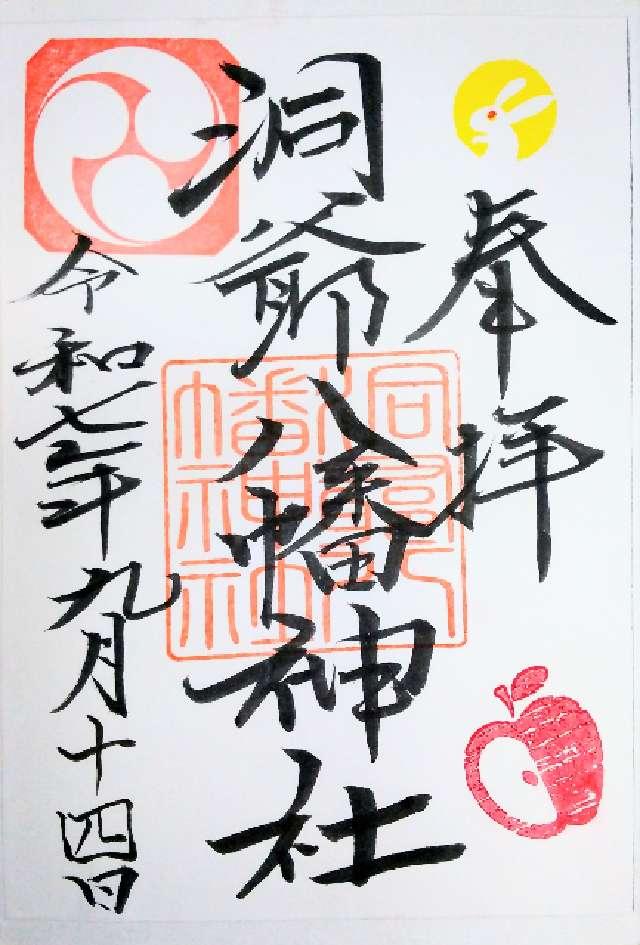 奉拝
洞爺八幡神社
洞爺八幡神社
令和七年九月十四日